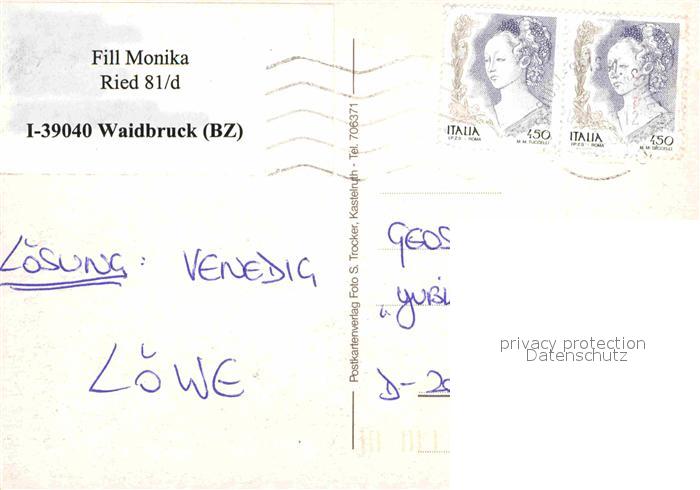 Fill Monika
Ried 81/d
I-39040 Waidbruck (BZ)
LÖSUNG: VENEDIG
LÖWE
Postkartenverlag Foto S. Trocker, Kastelruth - Tel. 706371
ITALIA 450
I.P.Z.S. - ROMA M. M. TUCCELLI
ITALIA 450
I.P.Z.S. - ROMA M. M. TUCCELLI
GEOS
"JUBI
D-20
privacy protection
Datenschutz